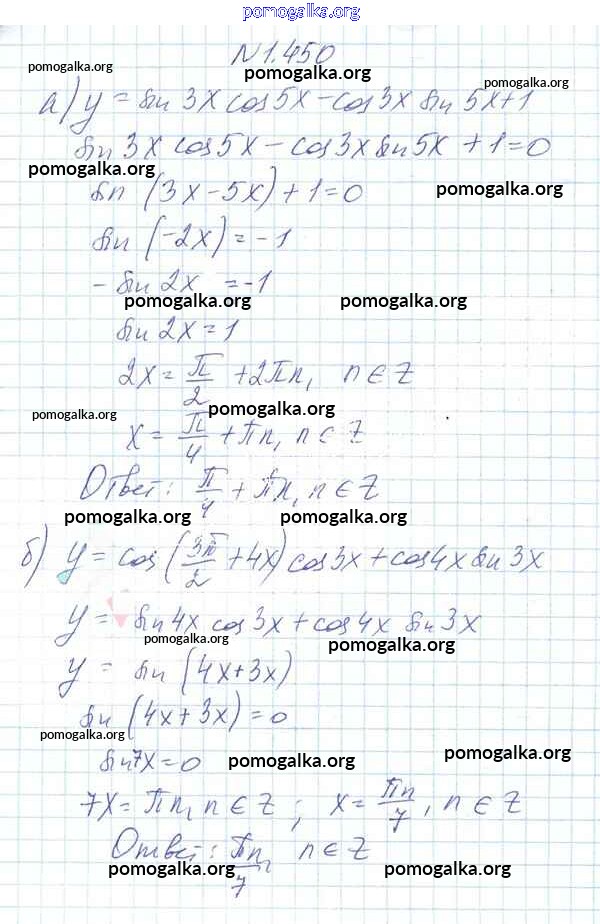 pomogalka.org
N 1.450
pomogalka.org pomogalka.org pomogalka.org
а) y = sin 3x cos 5x - cos 3x sin 5x + 1
sin 3x cos 5x - cos 3x sin 5x + 1 = 0
pomogalka.org pomogalka.org
sin (3x - 5x) + 1 = 0
sin (-2x) = -1
- sin 2x = -1
pomogalka.org pomogalka.org
sin 2x = 1
2x = π/2 + 2πn, n ∈ Z
pomogalka.org pomogalka.org
x = π/4 + πn, n ∈ Z
Ответ: π/4 + πn, n ∈ Z
pomogalka.org pomogalka.org
б) y = cos (3π/2 + 4x) cos 3x + cos 4x sin 3x
y = sin 4x cos 3x + cos 4x sin 3x
pomogalka.org pomogalka.org
y = sin (4x + 3x)
sin (4x + 3x) = 0
pomogalka.org pomogalka.org
sin 7x = 0
pomogalka.org
7x = πn, n ∈ Z; x = πn/7, n ∈ Z
Ответ: πn/7, n ∈ Z
pomogalka.org pomogalka.org